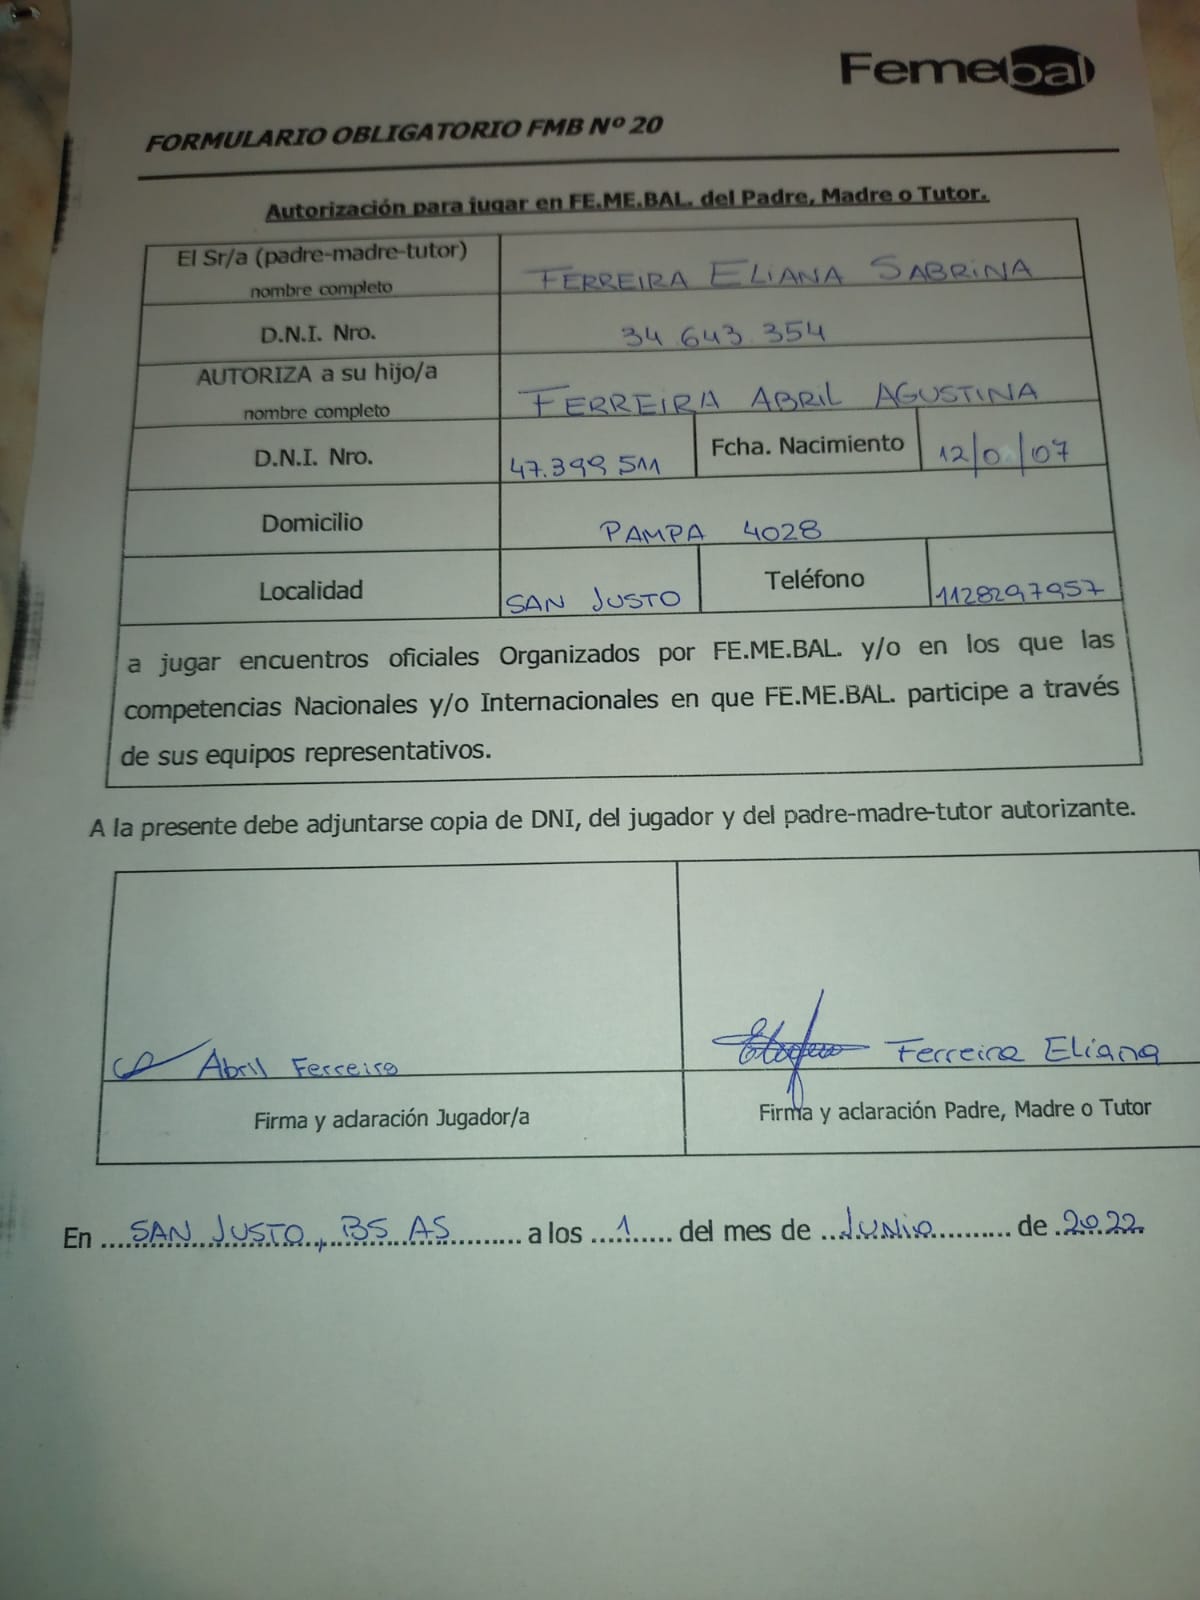 Femebal
FORMULARIO OBLIGATORIO FMB Nº 20
Autorización para jugar en FE.ME.BAL. del Padre, Madre o Tutor.
El Sr/a (padre-madre-tutor)
nombre completo
FERREIRA ELIANA SABRINA
D.N.I. Nro.
34 643 354
AUTORIZA a su hijo/a
nombre completo
FERREIRA ABRIL AGUSTINA
D.N.I. Nro.
47.399 511
Fcha. Nacimiento
Domicilio
PAMPA 4028
Localidad
SAN JUSTO
Teléfono
1128297957
a jugar encuentros oficiales Organizados por FE.ME.BAL. y/o en los que las
competencias Nacionales y/o Internacionales en que FE.ME.BAL. participe a través
de sus equipos representativos.
A la presente debe adjuntarse copia de DNI, del jugador y del padre-madre-tutor autorizante.
Abril Ferreira
Ferreira Eliana
Firma y aclaración Jugador/a
Firma y aclaración Padre, Madre o Tutor
En ....SAN JUSTO, BS AS......... a los ....1..... del mes de ...Junio.......... de .2022.